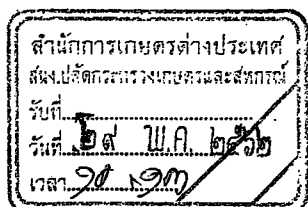 สำนักการเกษตรต่างประเทศ
สนง.ปลัดกระทรวงเกษตรและสหกรณ์
รับที่
วันที่ ๒๙ พ.ค. ๒๕๖๒
เวลา